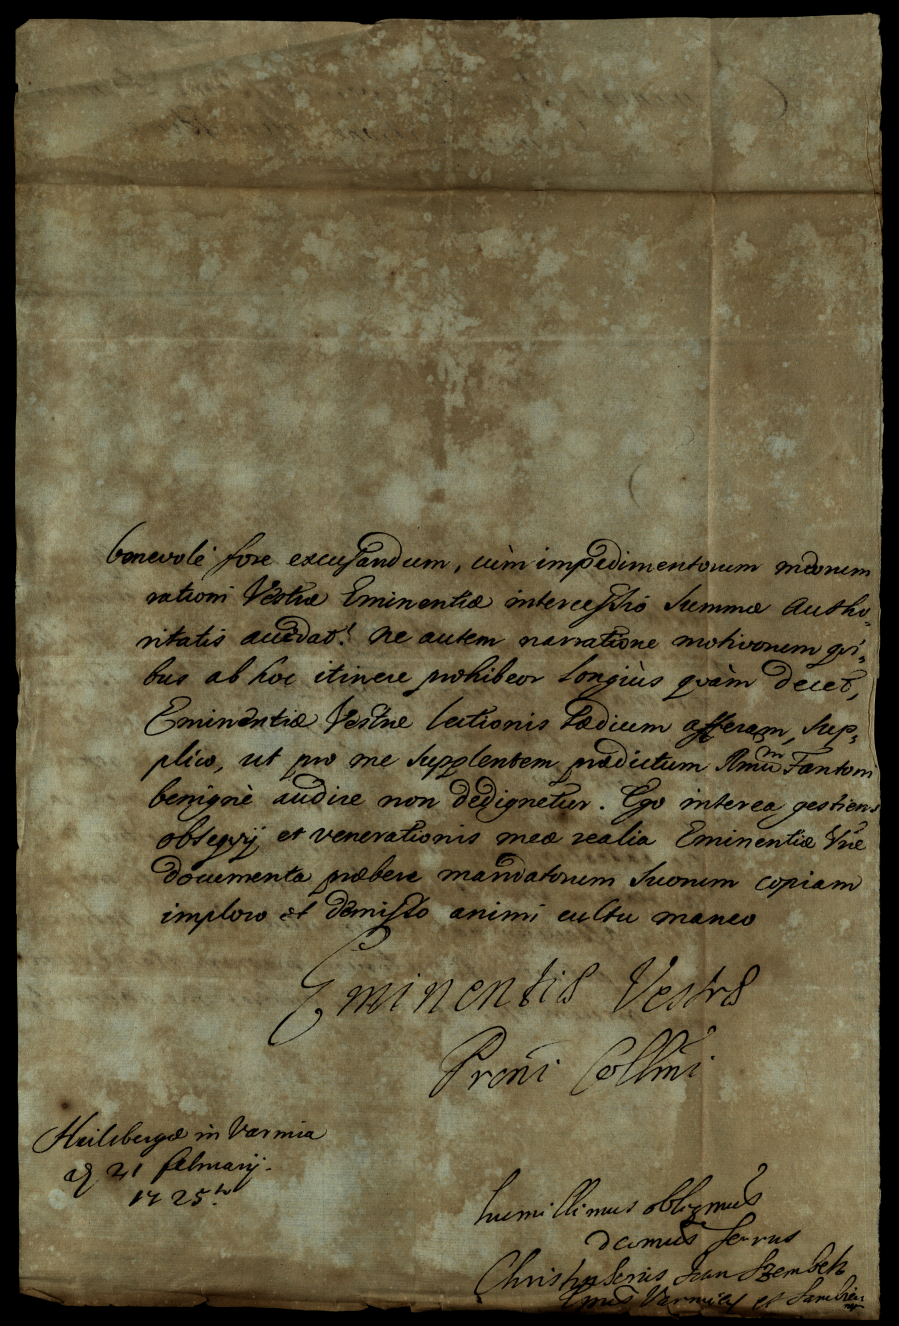 benevolè fore excusandum, cùm impedimentorum meorum
rationi Vestræ Eminentiæ intercessio Summæ Autho-
ritatis accedat. Ne autem narratione motivorum qui-
bus ab hoc itinere prohibeor longiùs quàm decet,
Eminentiæ Vestræ lectionis tædium afferam, sup-
plico, ut pro me supplentem prædictum Rmum Fantoni
benignè audire non dedignetur. Ego interea gestiens
obsequij et venerationis meæ realia Eminentiæ Vræ
documenta præbere mandatorum suorum copiam
imploro et demisso animi cultu maneo
Eminentiæ Vestræ
Heilsbergæ in Varmia
21 februarij
1725.
humillimus obligmus
servus
Christophorus Jan Szembek
Epus Varmien et Sambien